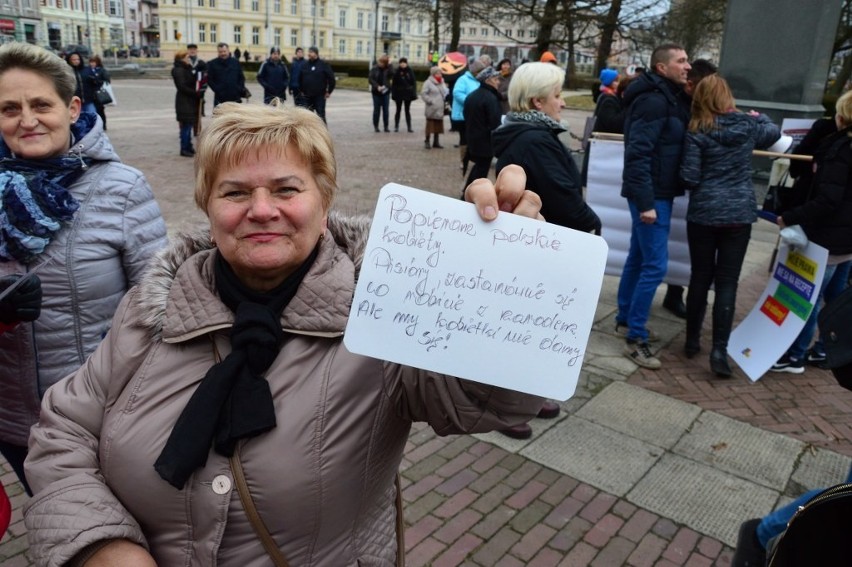 Popieram polskie
kobiety.
Pisiory, zastanówcie się
co robicie z narodem.
Ale my kobietki nie damy
się!